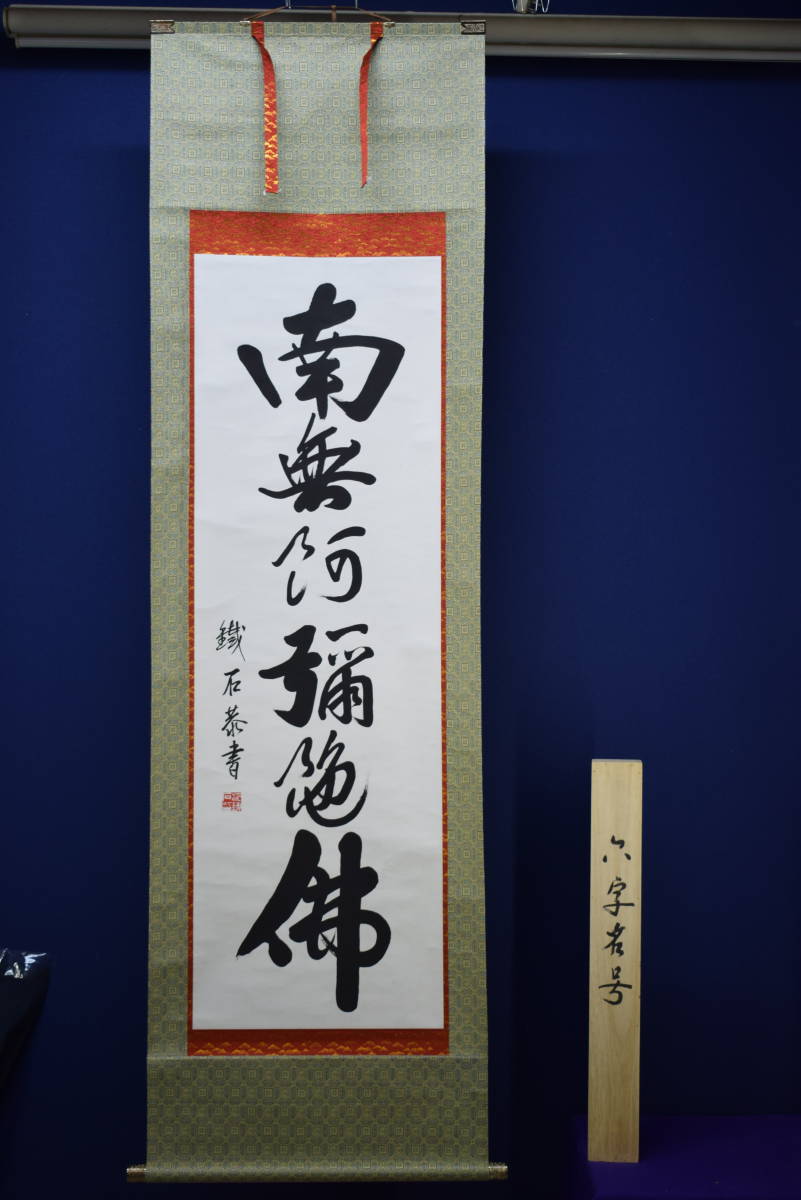 南無阿彌陀佛
鐵石恭書
六字名号